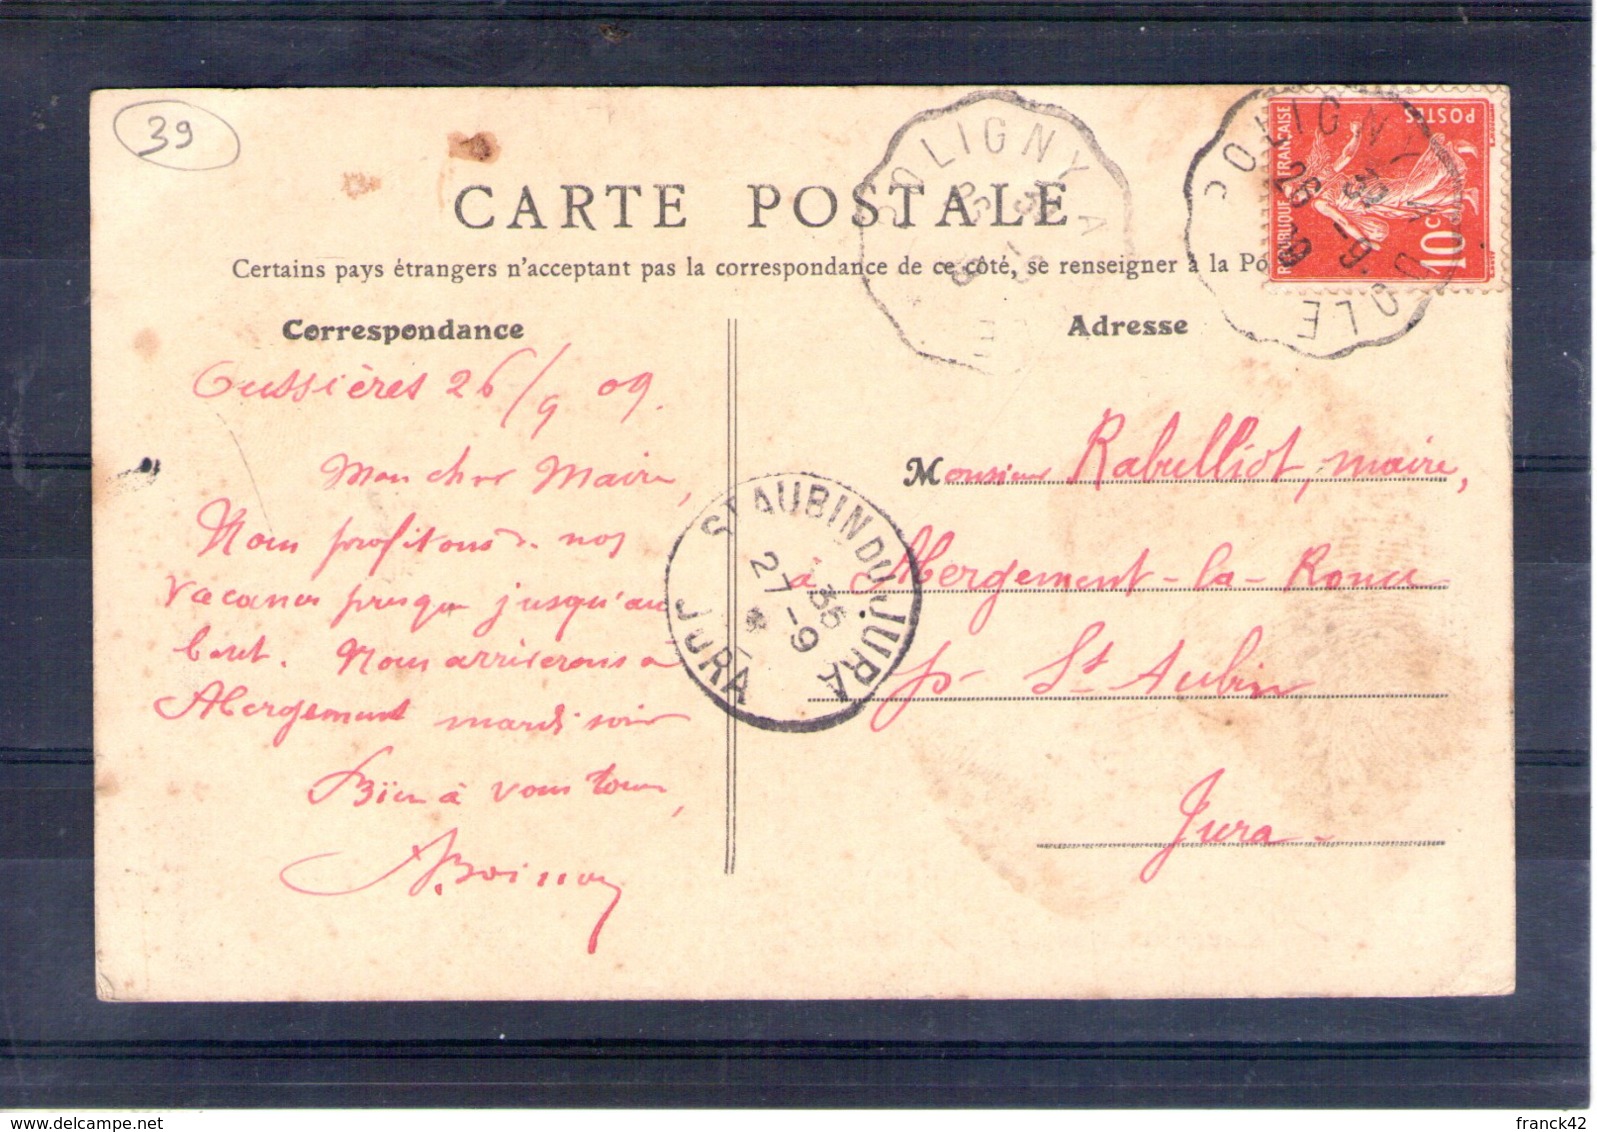 39
CARTE POSTALE
Certains pays étrangers n'acceptent pas la correspondance de ce côté, se renseigner à la Po
Correspondance
Adresse
POLIGNY A
POLIGNY A DOLE
26 -9 09
REPUBLIQUE FRANÇAISE
POSTES
10c
26/9 09.
Mon cher Maire,
Nous profitons de nos
vacances presque jusqu'au
bout. Nous arriverons à
Abergement mardi soir
Bien à vous tous,
Monsieur Rabulliot, maire,
à Abergement-la-Ronce
pr St Aubin
Jura.
ST AUBIN DU JURA
27 -9
JURA
delcampe.net
franck42